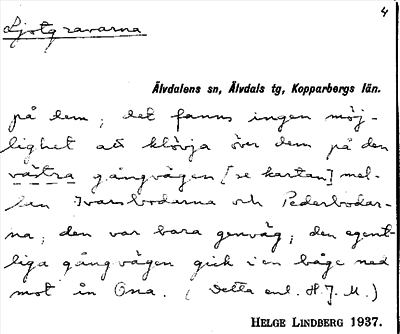 4
Ljotgravarna
Älvdalens sn, Älvdals tg, Kopparbergs län.
på dem; det fanns ingen möj-
lighet att klövja över dem på den
västra gångvägen [se kartan] mel-
lan Ivarsbodarna och Pederbodar-
na; den var bara genväg; den egent-
liga gångvägen gick i en båge ned
mot ån Ona. (Detta enl. H. J. M.)
HELGE LINDBERG 1937.